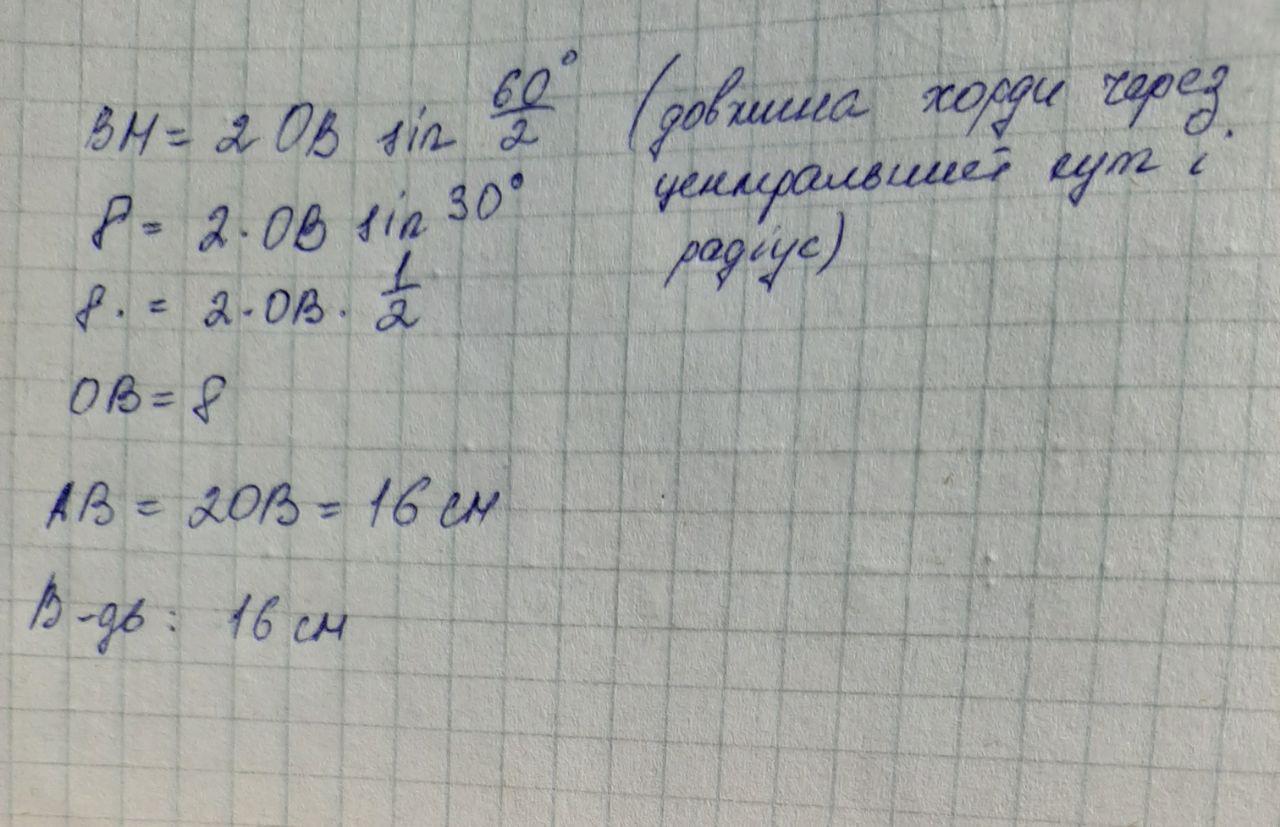 BH = 2 OB sin 60°/2 (довжина хорди через
центральний кут і
радіус)
8 = 2·OB sin 30°
8. = 2·OB·1/2
OB = 8
AB = 2OB = 16 см
В-дь: 16 см